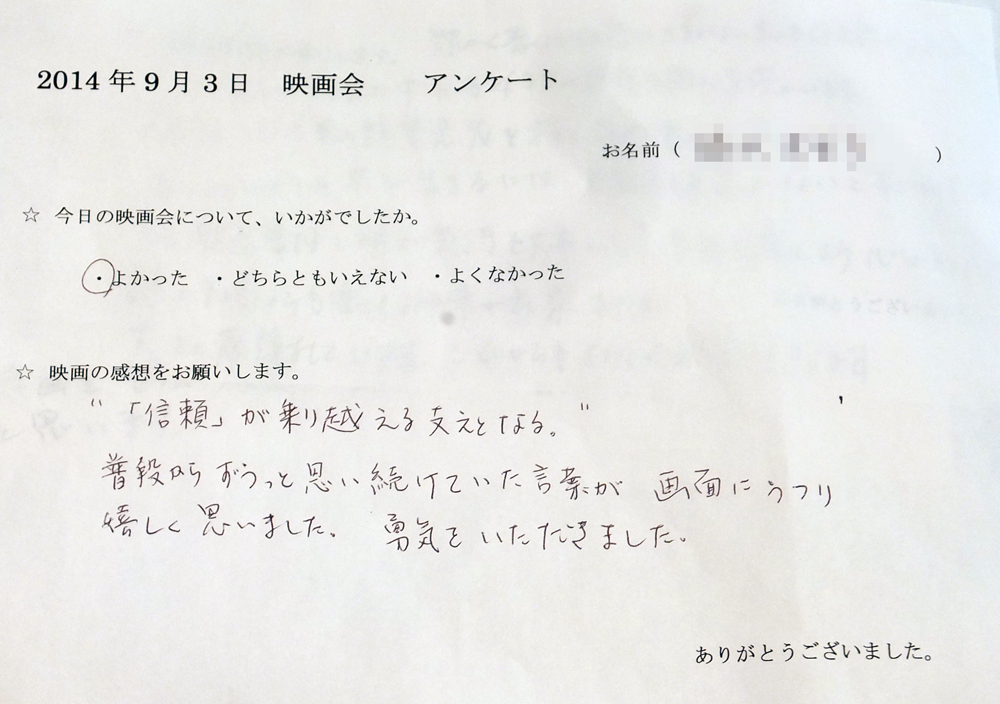 2014年9月3日 映画会 アンケート
お名前( )
☆ 今日の映画会について、いかがでしたか。
・よかった ・どちらともいえない ・よくなかった
☆ 映画の感想をお願いします。
"「信頼」が乗り越える支えとなる。"
普段からずうっと思い続けていた言葉が 画面にうつり
嬉しく思いました。 勇気をいただきました。
ありがとうございました。